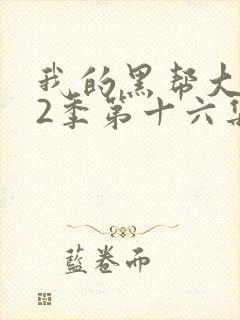 我的黑帮大
2季第十六集
蓝卷而